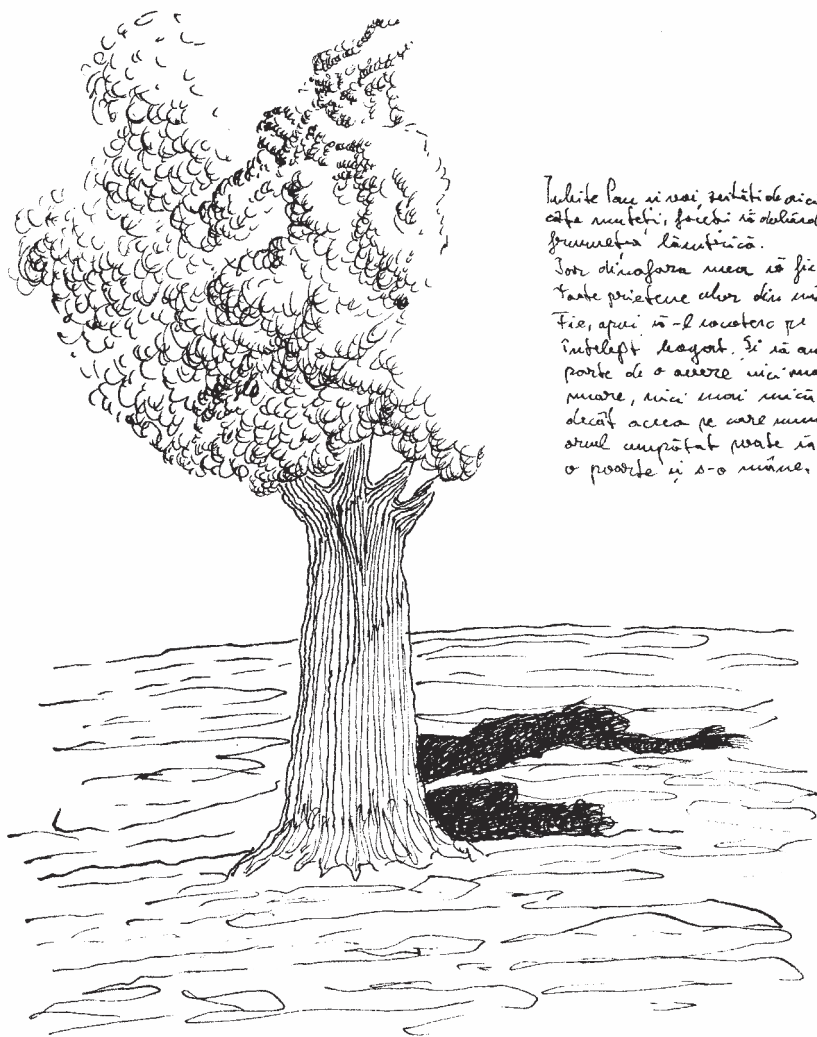 Iubite Pan și voi, zeități de aici
câte sunteți, faceți să dobând
frumusețea lăuntrică.
Iar dinafara mea să fie
toate prietene celor din mi
Fie, apoi să-l socotesc pe
înțelept bogat. Și să am
parte de o avere nici mai
mare, nici mai mică
decât aceea pe care num
omul cumpătat poate să
o poarte și s-o mâne.